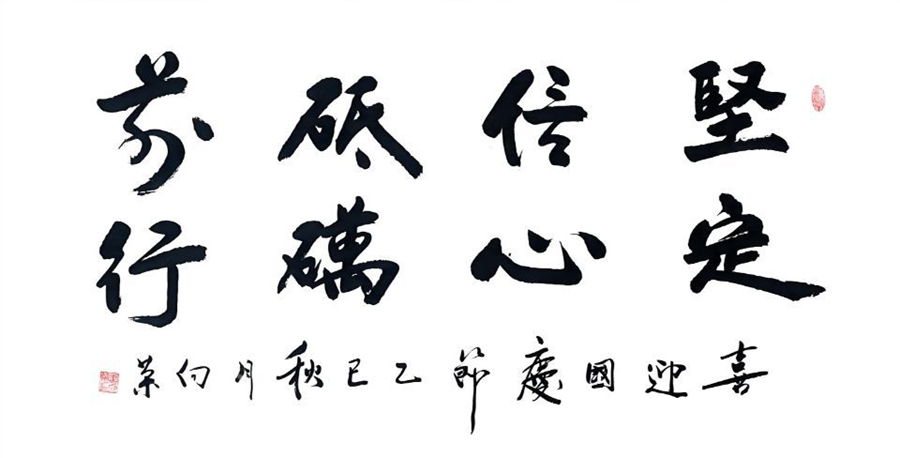 堅定
信心
砥礪
前行
喜迎國慶節乙巳秋月向榮